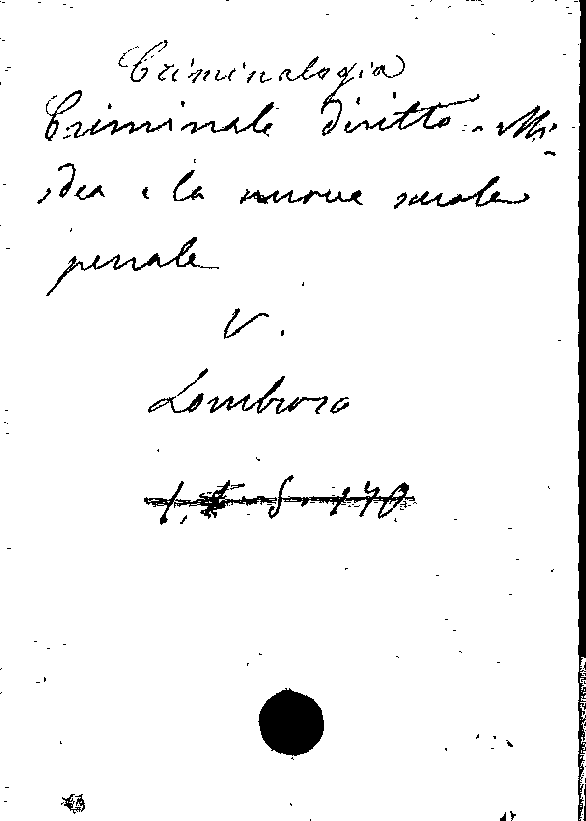 Criminalogia
Criminale diritto - Mi-
sdea e la nuova scuola
penale
V.
Lombroso